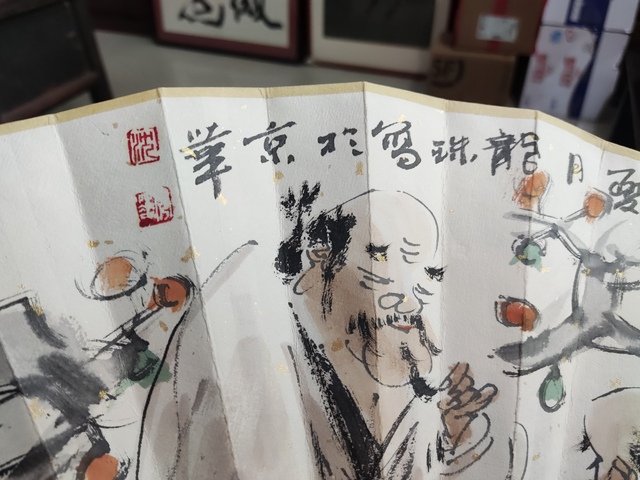 夏月龍珠寫於京華